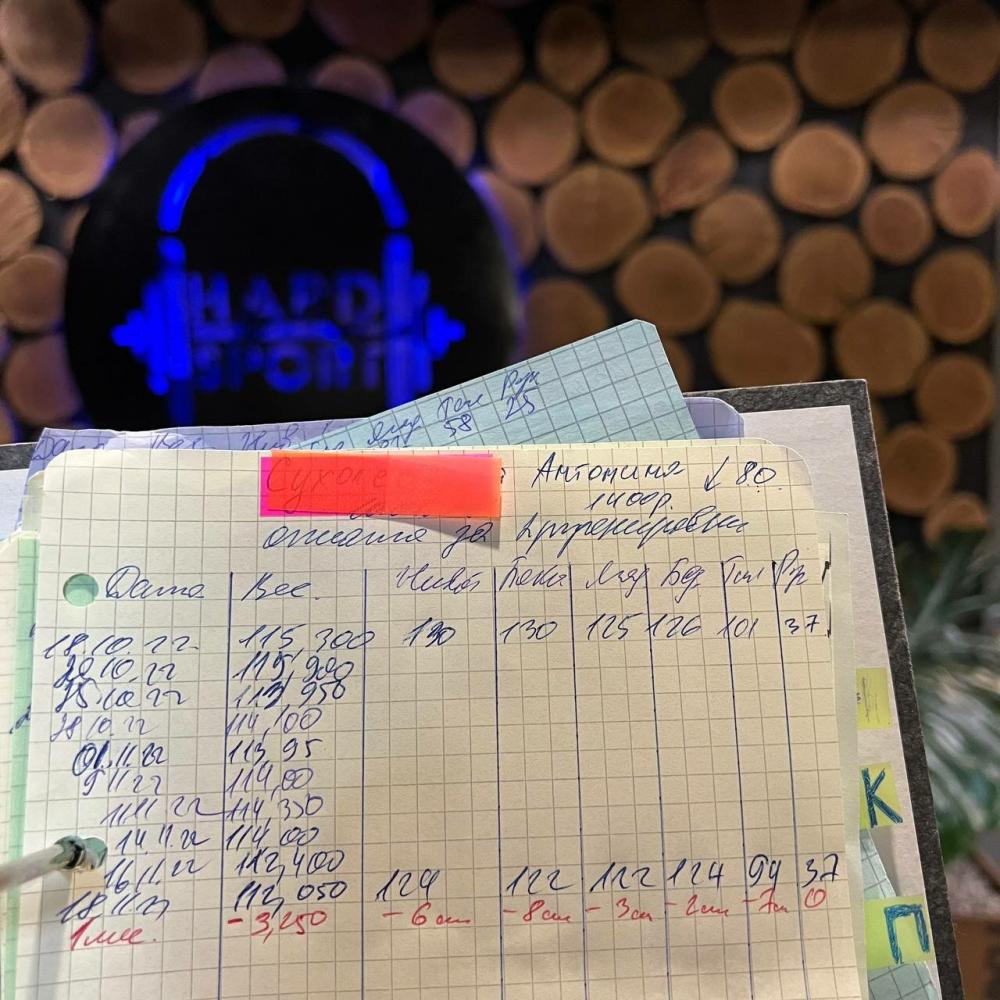 HARD
SPORT
Тал Рук
58 25
Антонина ↓ 80
1400р.
оплата за 4 тренировки
Дата Вес. Живот Бока Ляд Бед Тал Рук
18.10.22. 115,300 130 130 125 126 101 37
20.10.22 115,900
25.10.22 113,950
28.10.22 114,100
01.11.22 113,95
9.11.22 114,00
11.11.22 114,350
14.11.22 114,00
16.11.22 112,400
18.11.22 112,050 124 122 122 124 94 37
1 мес. -3,250 -6 см -8 см -3 см -2 см -7 см 0
К
П